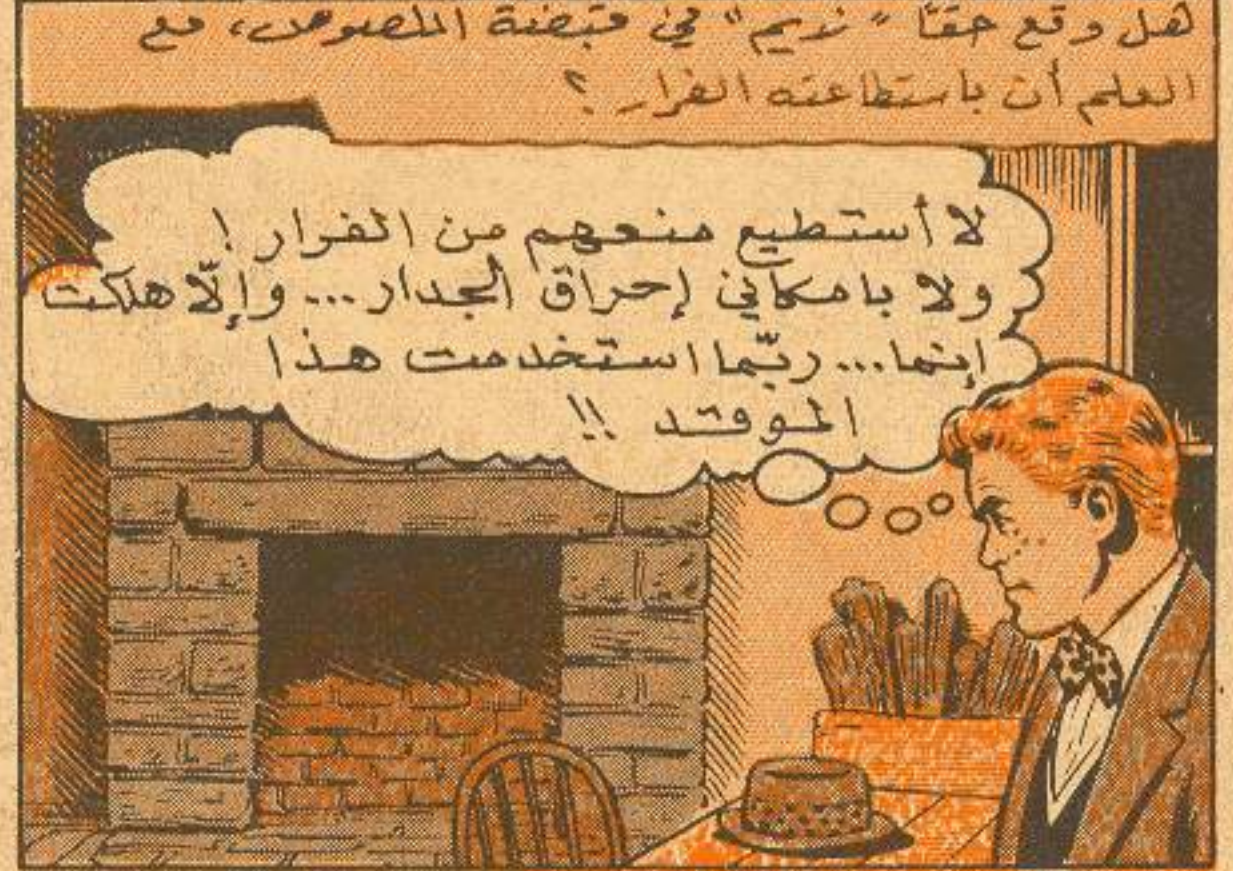 هل وقع حقتًا "نديم" في قبضة اللصوص، مع
العلم أن باستطاعته الفرار ؟
لا أستطيع منعهم من الفرار !
ولا بامكاني إحراق الجدار... وإلّا هلكت
إنما... ربّما استخدمت هذا
الموقد !!